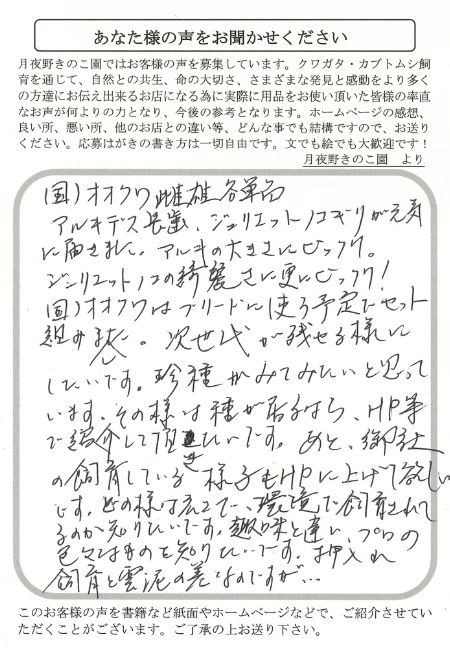 あなた様の声をお聞かせください
月夜野きのこ園ではお客様の声を募集しています。クワガタ・カブトムシ飼
育を通じて、自然との共生、命の大切さ、さまざまな発見と感動をより多く
の方達にお伝え出来るお店になる為に実際に用品をお使い頂いた皆様の率直
なお声が何よりの力となり、今後の参考となります。ホームページの感想、
良い所、悪い所、他のお店との違い等、どんな事でも結構ですので、お送り
ください。応募はがきの書き方は一切自由です。文でも絵でも大歓迎です！
月夜野きのこ園　より
国)オオクワ雌雄各単品
アルキデス長歯、ジュリエットノコギリが元気
に届きました。アルキの大きさにビックリ。
ジュリエットノコの綺麗さに更にビックリ！
国)オオクワはブリードに使う予定でセット
組みました。次世代が残せる様に
したいです。珍種がみてみたいと思って
います。その様な種が居るなら、HP等
で紹介して頂きたいです。あと、御社
の飼育している様子もHPに上げて欲しい
です。どの様な広さで、環境で飼育されて
るのか知りたいです。趣味と違い、プロの
色々なものを知りたいです。押入れ
飼育と雲泥の差なのですが…
このお客様の声を書籍など紙面やホームページなどで、ご紹介させてい
ただくことがございます。ご了承の上お送り下さい。